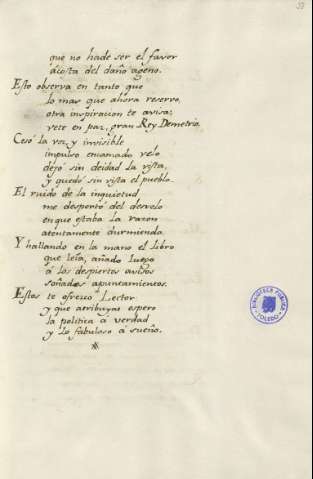 que no hade ser el favor
à costa del daño ageno.
Esto observa en tanto que
lo mas que ahora reservo,
otra inspiracion te avisa;
vete en paz, gran Rey Demetrio.
Cesó la voz, y invisible
impulso enramado velo
dejó sin deidad la vista,
y quedó sin vista el pueblo.
El ruido de la inquietud
me despertó del desvelo
en que estaba la razon
atentamente durmiendo.
Y hallando en la mano el libro
que leía, añado luego
á los despiertos avisos
soñados apuntamientos.
Estos te ofrezco Lector
y que atribuyas espero
la politica á verdad
y lo fabuloso á sueño.
BIBLIOTECA PUBLICA
TOLEDO